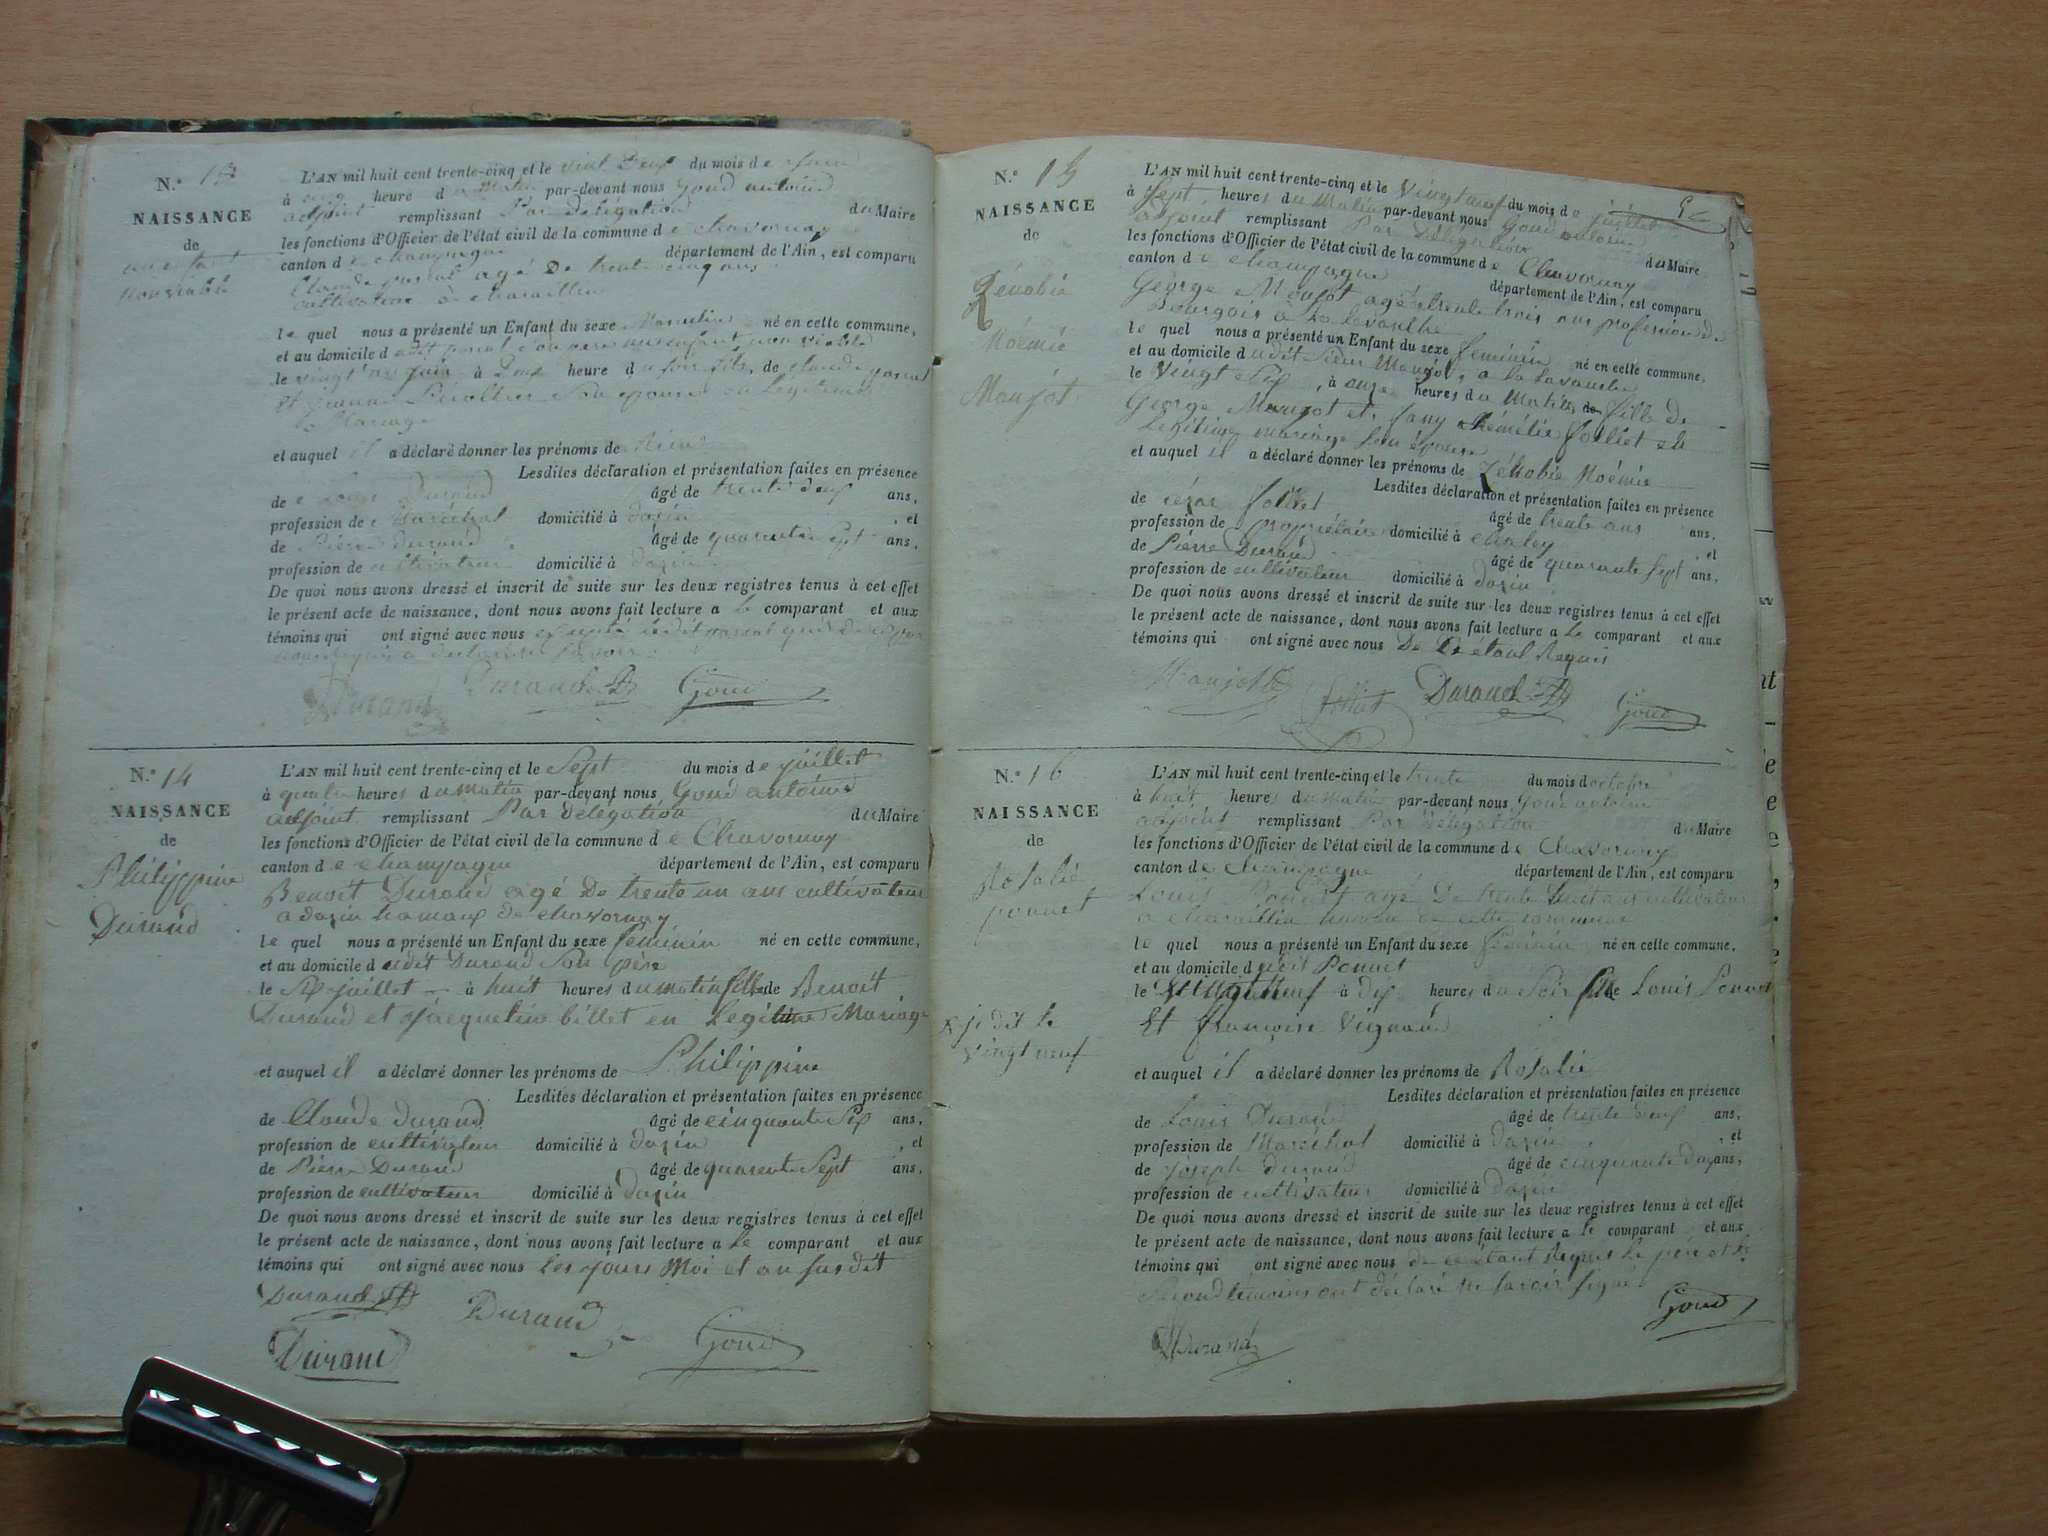 N.° 13
NAISSANCE
de
un enfant
non viable
L'AN mil huit cent trente-cinq et le vint Deux du mois de juin
à cinq heure du Matin par-devant nous Goud antoine
adjoint remplissant Par délégation du Maire
les fonctions d'Officier de l'état civil de la commune de chavornay
canton de champagne département de l'Ain, est comparu
Claude agé De trente cinq ans
cultivateur à charaillin
le quel nous a présenté un Enfant du sexe Masculin né en cette commune,
et au domicile du dit son père un enfant non viable
le vingt un juin à Deux heure du soir fils de claude
et Son épouse en légitime
Mariage
et auquel il a déclaré donner les prénoms de
Lesdites déclaration et présentation faites en présence
de Louis Durand âgé de trente deux ans,
profession de Maréchal domicilié à dazin , et
de Pierre durand âgé de quarante sept ans,
profession de cultivateur domicilié à dazin
De quoi nous avons dressé et inscrit de suite sur les deux registres tenus à cet effet
le présent acte de naissance, dont nous avons fait lecture a le comparant et aux
témoins qui ont signé avec nous
Durand Durand Goud
N.° 14
NAISSANCE
de
Philippine
Durand
L'AN mil huit cent trente-cinq et le Sept du mois de juillet
à quatre heures du matin par-devant nous Goud antoine
adjoint remplissant Par délégation du Maire
les fonctions d'Officier de l'état civil de la commune de Chavornay
canton de champagne département de l'Ain, est comparu
Benoit Durand agé De trente un ans cultivateur
a dazin hamaux de chavornay
le quel nous a présenté un Enfant du sexe feminin né en cette commune,
et au domicile du dit Durand Son père
le Six juillet à huit heures du matin fille de Benoit
Durand et Jacqueline billet en Legitime Mariage
et auquel il a déclaré donner les prénoms de Philippine
Lesdites déclaration et présentation faites en présence
de Claude durand âgé de cinquante Six ans,
profession de cultivateur domicilié à dazin , et
de Pierre Durand âgé de quarente Sept ans,
profession de cultivateur domicilié à dazin
De quoi nous avons dressé et inscrit de suite sur les deux registres tenus à cet effet
le présent acte de naissance, dont nous avons fait lecture a le comparant et aux
témoins qui ont signé avec nous Les jours Moi et an susdit
Durand Durand
Durand Goud
N.° 15
NAISSANCE
de
Zénobie
Noémie
Monjot
L'AN mil huit cent trente-cinq et le Vingt neuf du mois de juillet
à Sept heures du Matin par-devant nous Goud antoine
adjoint remplissant Par Délégation du Maire
les fonctions d'Officier de l'état civil de la commune de Chavornay
canton de champagne département de l'Ain, est comparu
George Monjot agé trente trois ans profession de
Bourgois à la lavanche
le quel nous a présenté un Enfant du sexe feminin né en cette commune,
et au domicile du dit Sieur Monjot, a la Lavanche
le Vingt Six, à onze heures du Matin fille de
George Monjot et fany folliet en
Legitime mariage Son épouse
et auquel il a déclaré donner les prénoms de Zénobie Noémie
Lesdites déclaration et présentation faites en présence
de cézar folliet âgé de trente ans ans,
profession de propriétaire domicilié à chaley , et
de Pierre Durand âgé de quarante Sept ans,
profession de cultivateur domicilié à dazin
De quoi nous avons dressé et inscrit de suite sur les deux registres tenus à cet effet
le présent acte de naissance, dont nous avons fait lecture a le comparant et aux
témoins qui ont signé avec nous De Ce etant Requis
Monjot folliet Durand Goud
N.° 16
NAISSANCE
de
Rosalie
ponnet
je dit le
vingt neuf
L'AN mil huit cent trente-cinq et le trente du mois d octobre
à huit heures du Matin par-devant nous Goud antoine
adjoint remplissant Par Délégation du Maire
les fonctions d'Officier de l'état civil de la commune de Chavornay
canton de Champagne département de l'Ain, est comparu
Louis Ponnet agé De trente huit ans cultivateur
a charaillin hameau de cette commune
le quel nous a présenté un Enfant du sexe féminin né en cette commune,
et au domicile du dit Ponnet
le Vingt Neuf à dix heures du Soir fille de Louis Ponnet
Et françoise Vignand
et auquel il a déclaré donner les prénoms de Rosalie
Lesdites déclaration et présentation faites en présence
de Louis Durand âgé de trente deux ans,
profession de Maréchal domicilié à dazin , et
de joseph durand âgé de cinquante ans,
profession de cultivateur domicilié à dazin
De quoi nous avons dressé et inscrit de suite sur les deux registres tenus à cet effet
le présent acte de naissance, dont nous avons fait lecture a le comparant et aux
témoins qui ont signé avec nous de ce étant Requis Le père et le
Second témoins ont déclaré ne savoir signé
Durand Goud